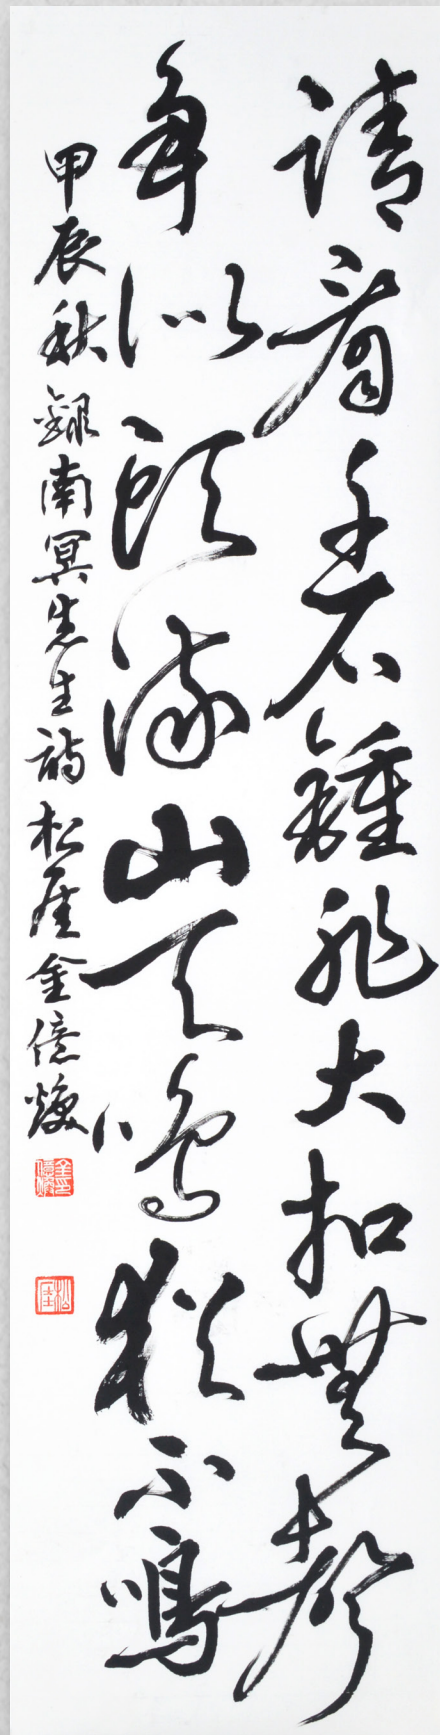 請看千石鍾非大扣無聲
爭似頭流山天鳴猶不鳴
甲辰秋錄南冥先生詩 松厓金億煥